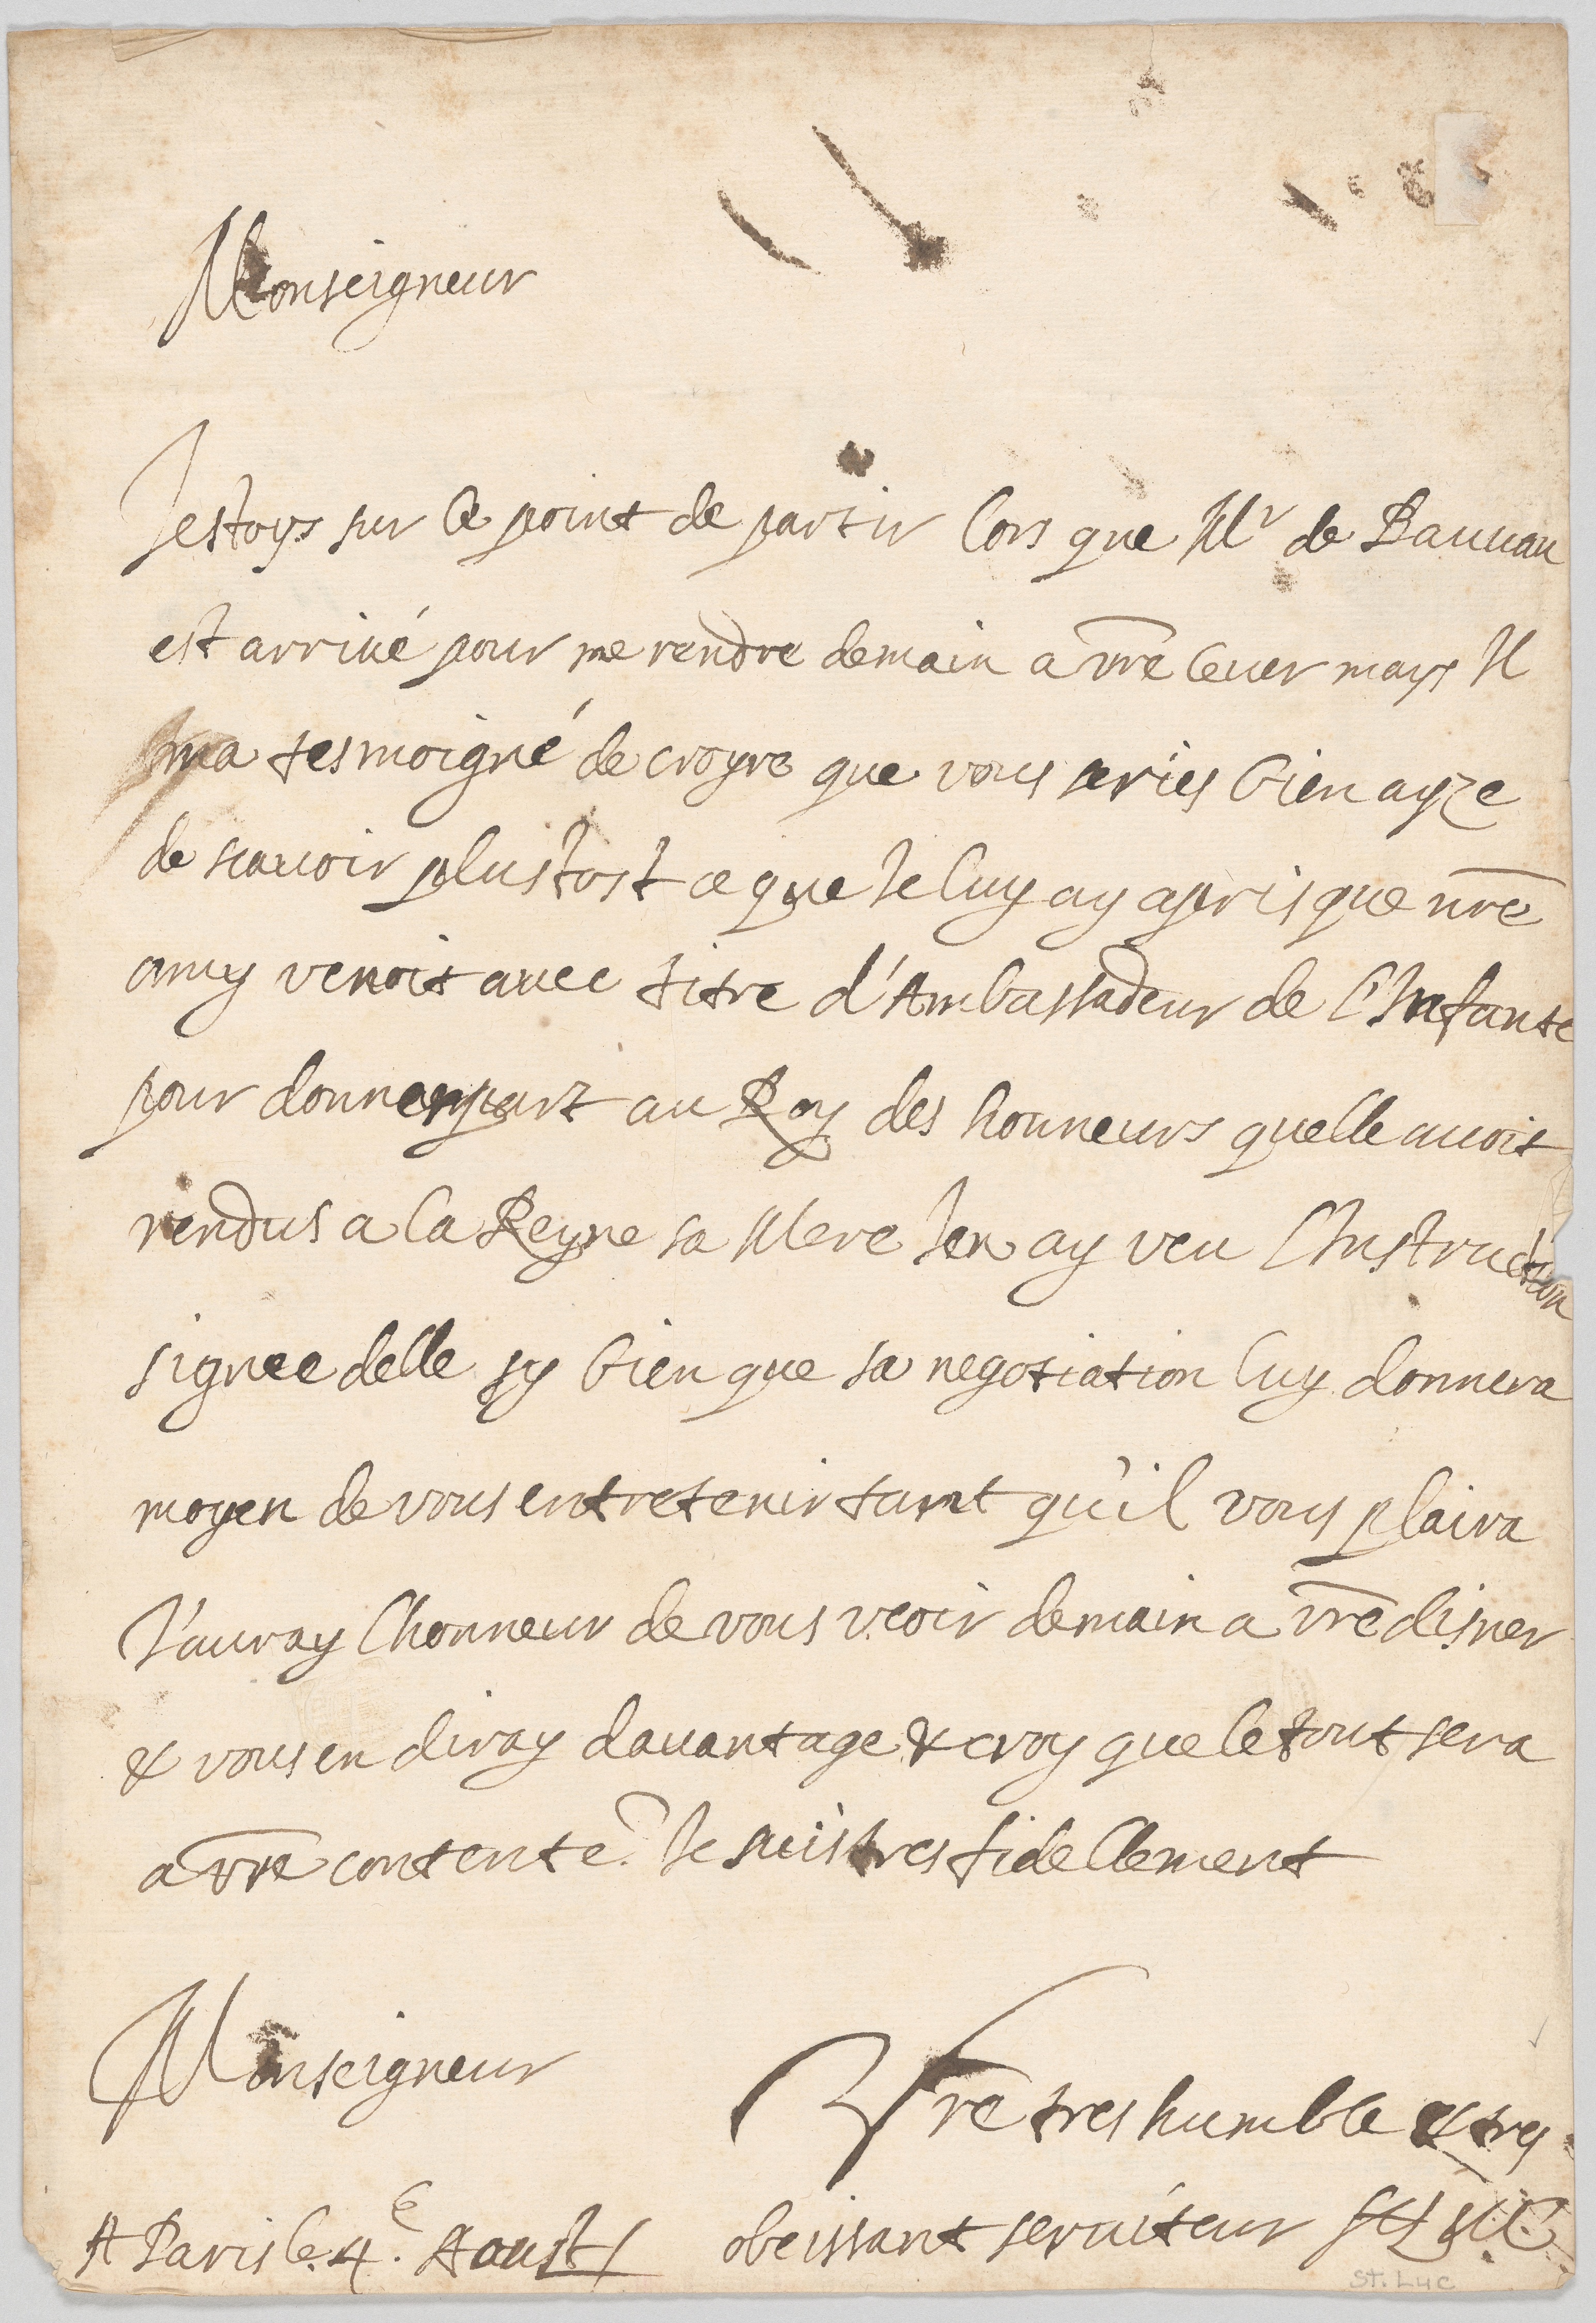 Monseigneur
Jestoys sur le point de partir lors que Mr de Bauuau
est arriué pour me rendre demain a vre leuer mays Il
ma tesmoigné de croyre que vous series bien ayze
de scauoir plustost ce que Je luy ay apris que nre
amy venoit auec titre d'Ambassadeur de l'Infante
pour donner part au Roy des honneurs quelle auoit
rendus a la Reyne sa Mere Jen ay veu l'Instruction
signee delle sy bien que sa negotiation luy donnera
moyen de vous entretenir tant qu'il vous plaira
J'auray lhonneur de vous veoir demain a vre disner
& vous en diray dauantage & croy que le tout sera
a vre contente. Je suis tres fidellement
Monseigneur
Vre tres humble & tres
A Paris le 4e. Aoust
obeissant seruiteur St Luc
St. Luc